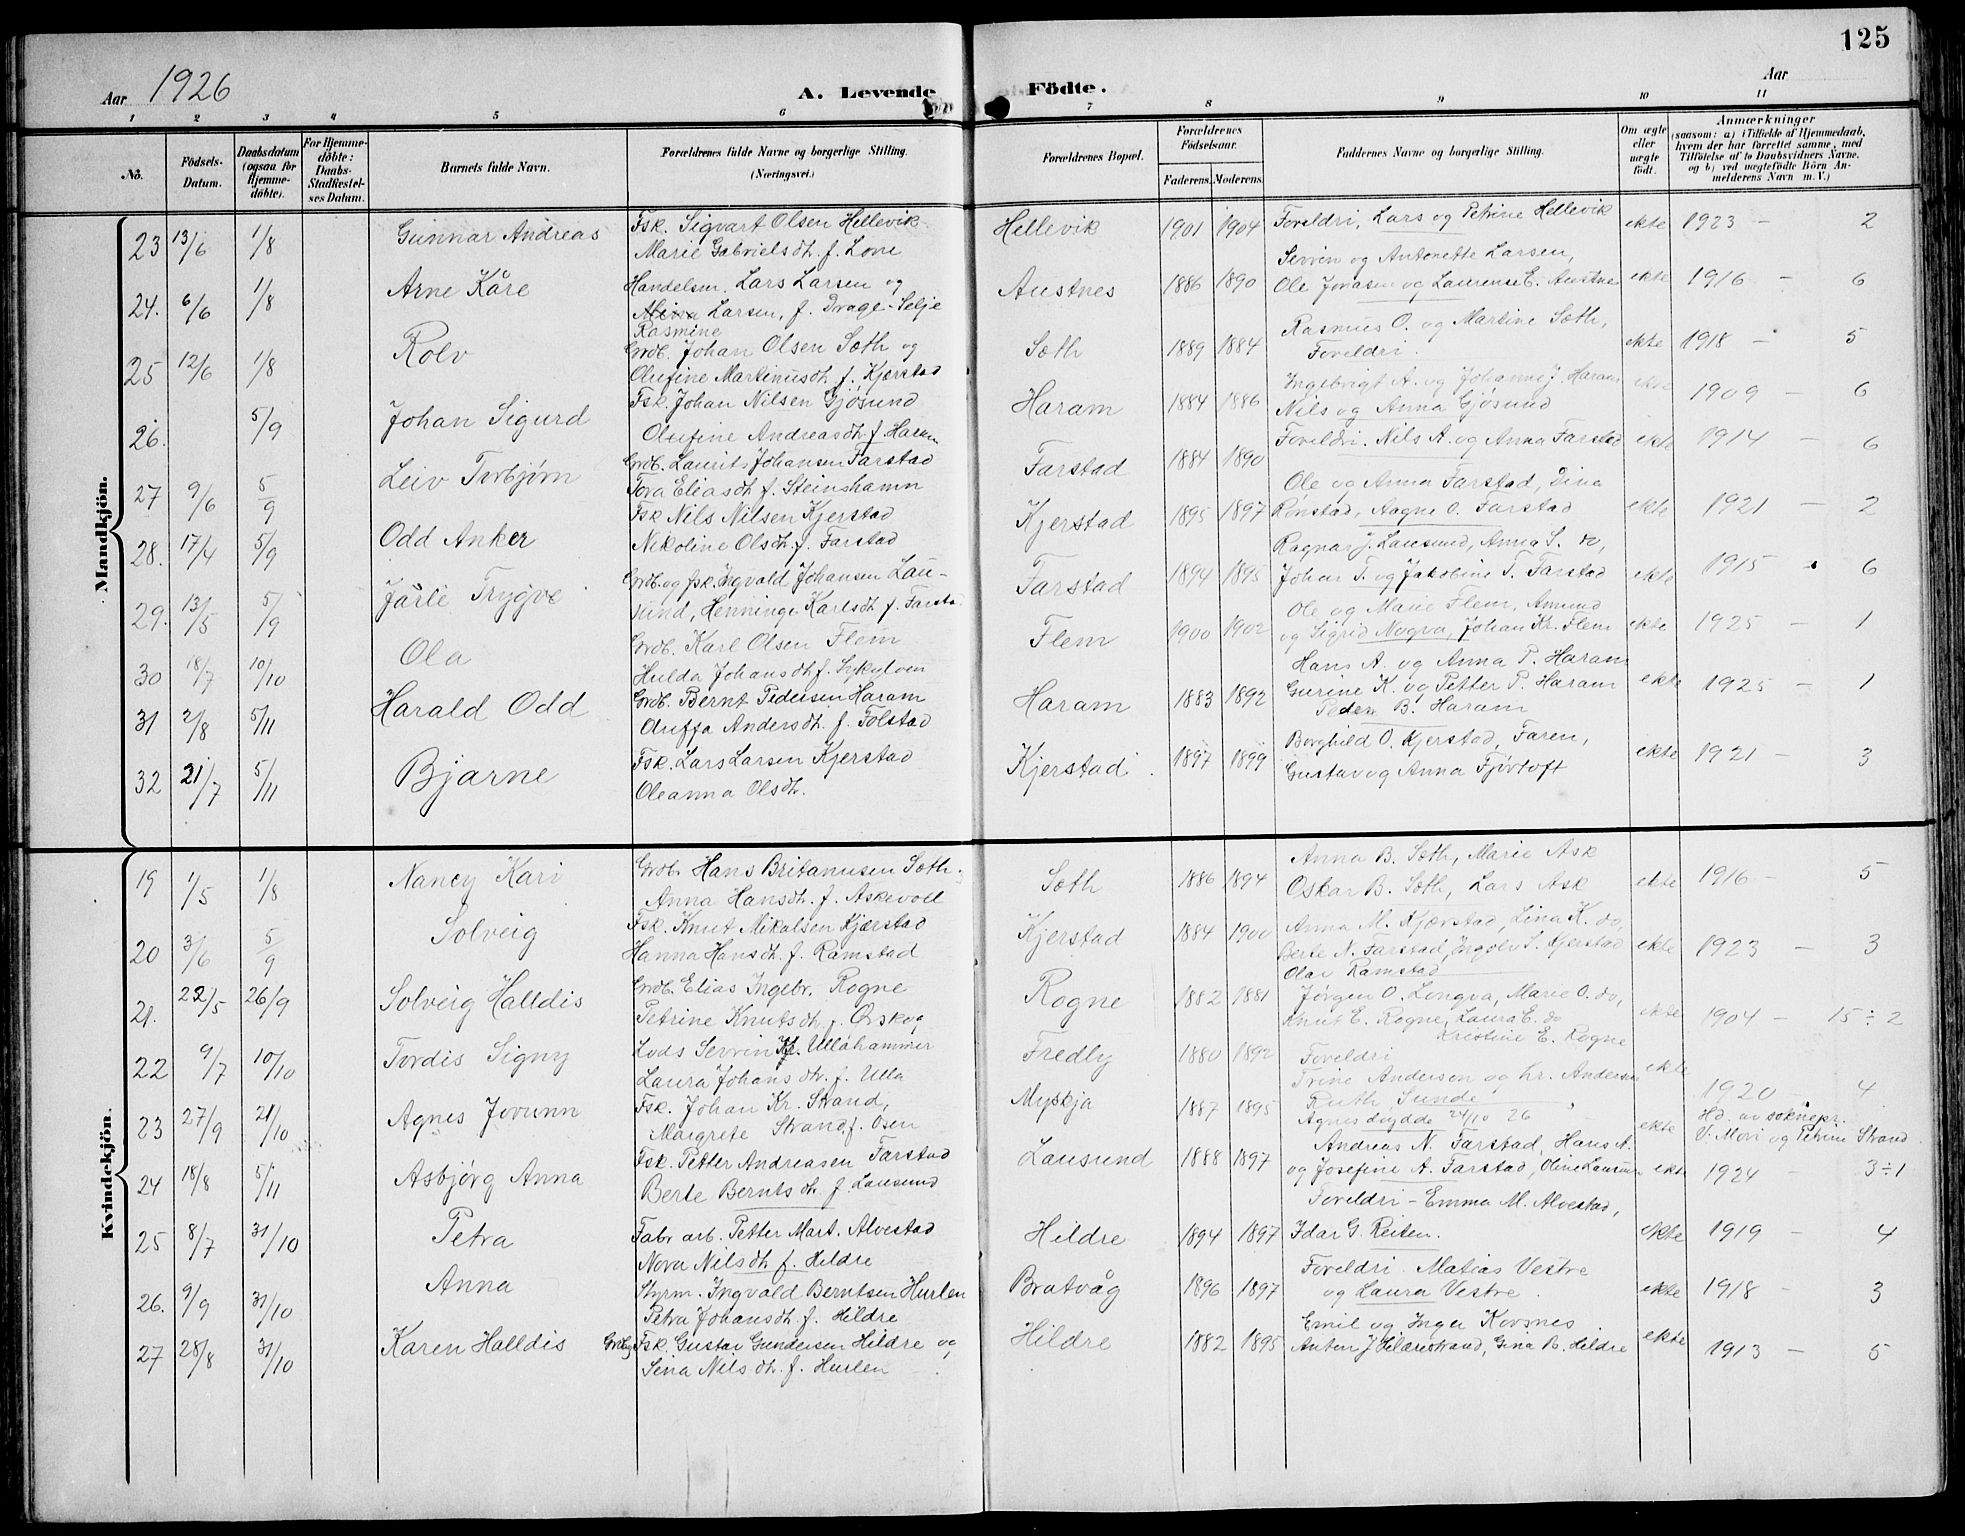 125
Aar 1926
A. Levende Födte.
Aar
1 2 3 4 5 6 7 8 9 10 11
No.
Födsels-Datum.
Daabsdatum (ogsaa for Hjemmedöbte).
For Hjemmedöbte: Daabs-Stadfestelses Datum.
Barnets fulde Navn.
Forældrenes fulde Navne og borgerlige Stilling. (Næringsvei.)
Forældrenes Bopæl.
Forældrenes Födselsaar.
Faderens. Moderens.
Faddernes Navne og borgerlige Stilling.
Om ægte eller uægte födt.
Anmærkninger
(saasom: a) i Tilfælde af Hjemmedaab, hvem der har forrettet samme, med Tilföielse af to Daabsvidners Navne, og b) ved uægtefödte Börn Anmelderens Navn m. V.)
Mandkjön.
23 13/6 1/8 Gunnar Andreas Fsk. Sigvart Olsen Hellevik Hellevik 1901 1904 Foreldri, Lars og Petrine Hellevik ekte 1923 – 2
Marie Gabrielsdtr. f. Lone
24. 6/6 1/8 Arne Kåre Handelsm. Lars Larsen og Austnes 1886 1890 Sevrin og Antonette Larsen, ekte 1916 – 6
Larsen, f. Drage - Selje Ole Jonasen og Laurense E. Austnes
Rasmine
25 12/6 1/8 Rolv Grdb. Johan Olsen Søth og Søth 1889 1884 Rasmus O. og Martine Søth, ekte 1918 – 5
Olufine Martinusdtr. f. Kjærstad Foreldri.
26. 5/9 Johan Sigurd Fsk. Johan Nilsen Gjøsund Haram 1884 1886 Ingebrigt A. og Johanne J. Haram ekte 1909 – 6
Olufine Andreasdtr. f. Haram Nils og Anna Gjøsund
27 9/6 5/9 Leiv Torbjørn Grdb. Laurits Johansen Farstad Farstad 1884 1890 Foreldri. Nils A. og Anna Farstad ekte 1914 – 6
Tora Eliasdtr. f. Steinshamn
28. 17/4 5/9 Odd Anker Fsk Nils Nilsen Kjerstad Kjerstad 1895 1897 Ole og Anna Farstad, Dina ekte 1921 – 2
Nikoline Olsdtr. f. Farstad Rønstad, Aagne O. Farstad
29. 13/5 5/9 Jarle Trygve Grdb. og fsk. Ingvald Johansen Lau- Farstad 1894 1895 Ragnar J. Lausund, Anna S. do, ekte 1915 – 6
sund, Henninge Karlsdtr. f. Farsta. Johan T. og Jakobine T. Farstad
30 18/7 10/10 Ola Grdb. Karl Olsen Flem Flem 1900 1902 Ole og Marie Flem, Amund ekte 1925 – 1
Hulda Johansdtr. f. Sykylven og Sigrid Nogva, Johan Kr. Flem
31 2/8 5/11 Harald Odd Grdb. Bernt Pedersen Haram Haram 1883 1892 Hans A. og Anna P. Haram ekte 1925 – 1
Oluffa Andersdtr. f. Folstad Gurine K. og Petter P. Haram
Peder B. Haram
32 21/7 5/11 Bjarne Fsk. Lars Larsen Kjerstad Kjerstad. 1897 1899 Borghild O. Kjerstad, Faren, ekte 1921 – 3
Oleanna Olsdtr. Gustav og Anna Fjørtoft
Kvindekjön.
19 1/5 1/8 Nancy Kari Grdb. Hans Britanusen Søth Søth 1886 1894 Anna B. Søth, Marie Ask ekte 1916 – 5
Anna Hansdtr. f. Askevoll Oskar B. Søth, Lars Ask
20 3/6 5/9 Solveig Fsk. Knut Mikalsen Kjærstad Kjerstad 1884 1900 Anna M. Kjærstad, Lina K. do, ekte 1923 – 3
Hanna Hansdtr. f. Ramstad Berte N. Farstad, Ingolv L. Kjerstad
Olav Ramstad
21. 22/5 26/9 Solveig Halldis Grdb. Elias Ingebr. Rogne Rogne 1882 1881 Jørgen O. Longva, Marie O. do, ekte 1904 – 15 ÷ 2
Petrine Knutsdtr. f. Ørskog Knut E. Rogne, Laura E. do
Kristine E. Rogne
22 9/7 10/10 Tordis Signy Lods Sevrin Kr. Ullahammer Fredly 1880 1892 Foreldri ekte 1920 – 4
Laura Johansdtr. f. Ulla Trine Andersen og Kr. Andersen
23 27/9 21/10 Agnes Jorunn Fsk. Johan Kr. Strand, Myskja 1887 1895 Ruth Sunde ekte Hd. av soknepr.
Margrete Strand f. Osen Agnes døydde 24/10 26 V. Moxi og Petrine Strand
24 18/8 5/11 Asbjørg Anna Fsk. Petter Andreasen Farstad Lausund 1888 1897 Andreas N. Farstad, Hans A. ekte 1924 – 3 ÷ 1
Berte Berntsdtr. f. Lausund og Josefine A. Farstad, Oline Lausun
25 8/7 31/10 Petra Fabr arb. Petter Mart. Alvestad Hildre 1894 1897 Foreldri – Emma M. Alvestad, ekte 1919 – 4
Nora Nilsdtr. f. Hildre Idar G. Reiten.
26. 9/9 31/10 Anna Styrm. Ingvald Berntsen Hurlen Bratvåg 1896 1897 Foreldri. Matias Vestre ekte 1918 – 3
Petra Johansdtr. f. Hildre og Laura Vestre.
27 28/8 31/10 Karen Halldis Grdb. Fsk. Gustav Gundersen Hildre og Hildre 1882 1895 Emil og Inger Korsnes ekte 1913 – 5
Sena Nilsdtr. f. Hurlen Anton J Hildrestrand, Gina B. Hildre